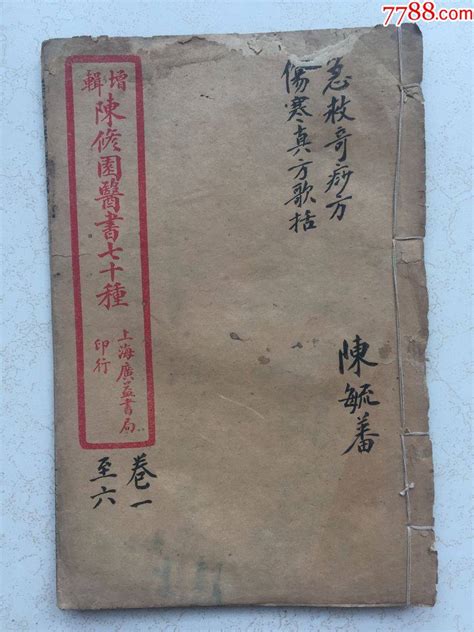 7788.com
急救奇痧方
傷寒真方歌括
陳毓蕃
增輯
陳修園醫書七十種
上海廣益書局
印行
卷一
至六